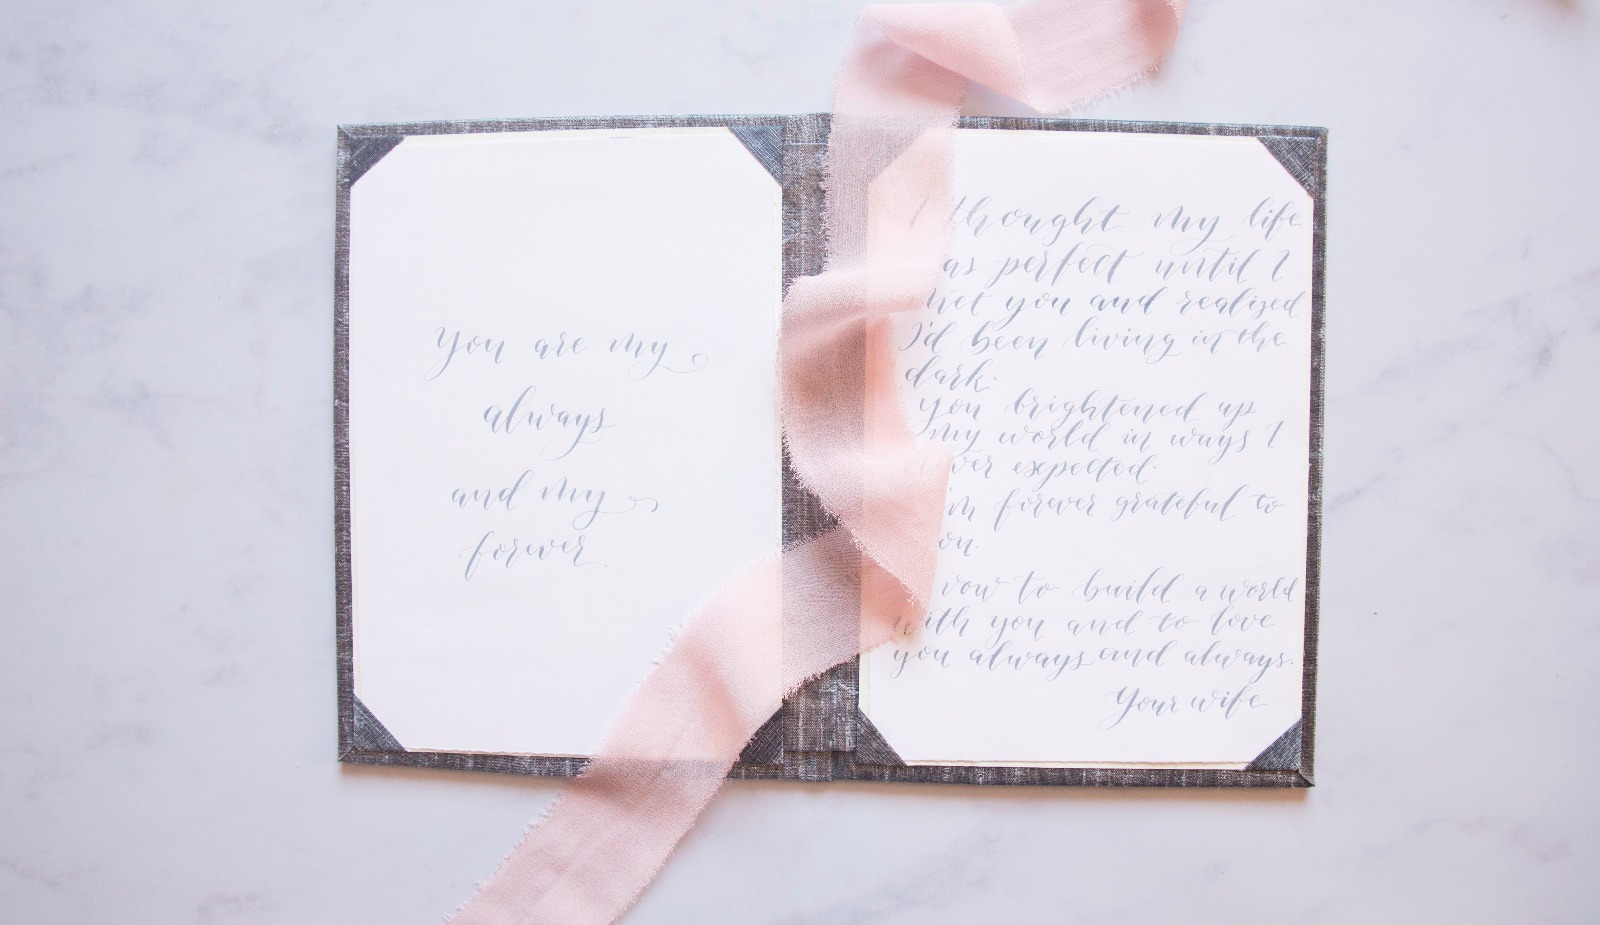 You are my
always
and my
forever
I thought my life
as perfect until I
met you and realized
I'd been living in the
dark.
you brightened up
my world in ways I
never expected.
I'm forever grateful to
you.
vow to build a world
with you and to love
you always and always.
Your wife